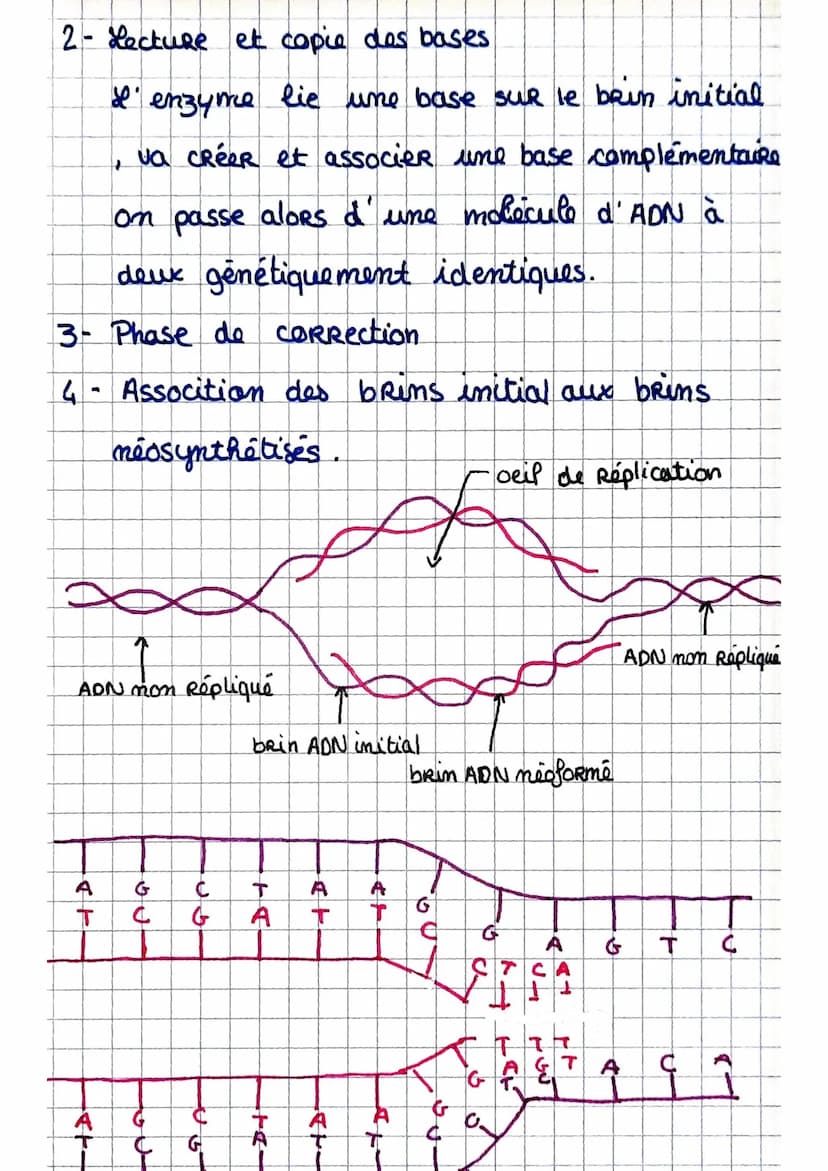 2- Lecture et copie des bases
L'enzyme lie une base sur le brin initial
, va créer et associer une base complémentaire
on passe alors d'une molécule d'ADN à
deux génétiquement identiques.
3- Phase de correction
4- Assocition des brins initial aux brins
néosynthétisés.
oeil de réplication
ADN non répliqué
ADN non répliqué
brin ADN initial
brin ADN néoformé
A G C T A A G G A G T C
T C G A T T C C T C A
T T T
G A G T A C A
T C
A G C T A A G C
T C G A T T C